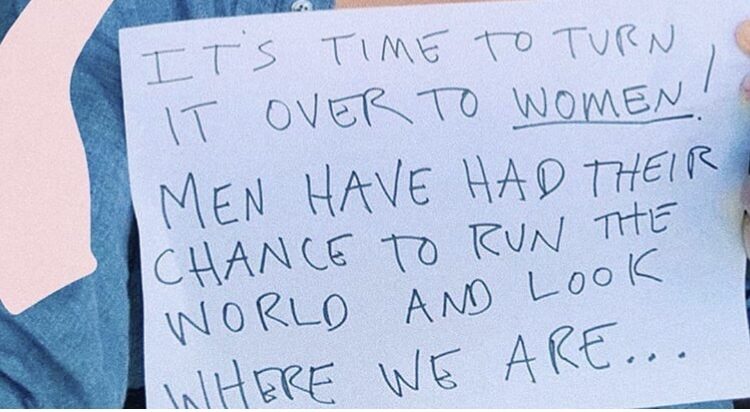 IT'S TIME TO TURN
IT OVER TO WOMEN!
MEN HAVE HAD THEIR
CHANCE TO RUN THE
WORLD AND LOOK
WHERE WE ARE...